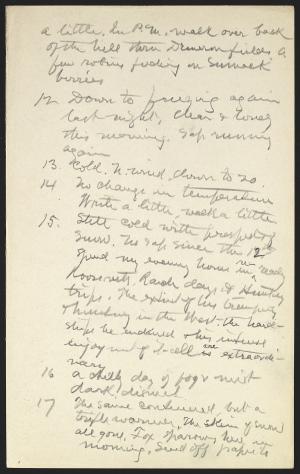 a little. In P.M. walk over back
of the hill thru Dimeron fields a
few robins feeding on Sumach
berries
12. Down to freezing again
last night, clear & lovely
this morning. Sap running
again
13. Cold. N. wind, down to 20.
14 No change in temperature
Write a little, walk a little
15. Still cold with prospect of
Snow. No sap since the 12th
Spend my evening hours in re-reading
Roosevelt's Ranch days & Hunting
trips. The extent of his tramping
& hunting in the West, the hard-
ships he endured & his intense
enjoyment of it all are extraordi-
nary
16 a chilly day of fog & mist
dark, dismal
17 The same continued, but a
trifle warmer, The skim of snow
all gone. Fox sparrows here in
morning. Send off paper to